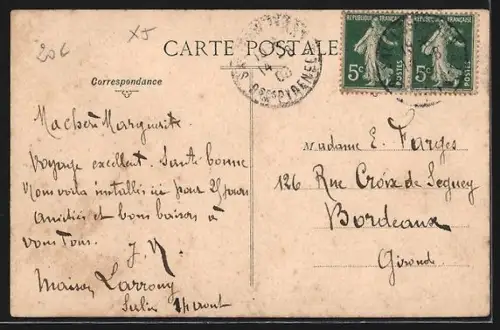 20€ x5
CARTE POSTALE
RÉPUBLIQUE FRANÇAISE RÉPUBLIQUE FRANÇAISE
5c POSTES 5c POSTES
14
Correspondance
Ma chère Marguerite
Voyage excellent. Santé bonne
Nous voilà installés ici pour 25 jours
Amitiés et bons baisers à
vous Tous. J. N.
Maison Larrouy
Salies 14 août
Madame E. Farges
126 Rue Croix de Seguey
Bordeaux
Gironde